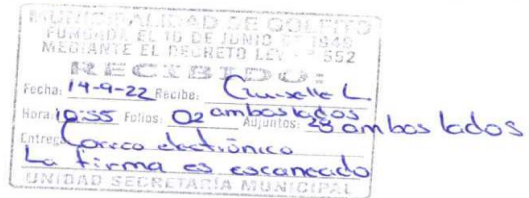 MUNICIPALIDAD DE GOLFITO
FUNDADA EL 10 DE JUNIO DE 1949
MEDIANTE EL DECRETO LEY 552
RECIBIDO:
Fecha: 14-9-22 Recibe: L
Hora: 10:55 Folios: 02 ambos lados Adjuntos: 28 ambos lados
Entrega Correo electrónico
La firma es escaneado
UNIDAD SECRETARÍA MUNICIPAL